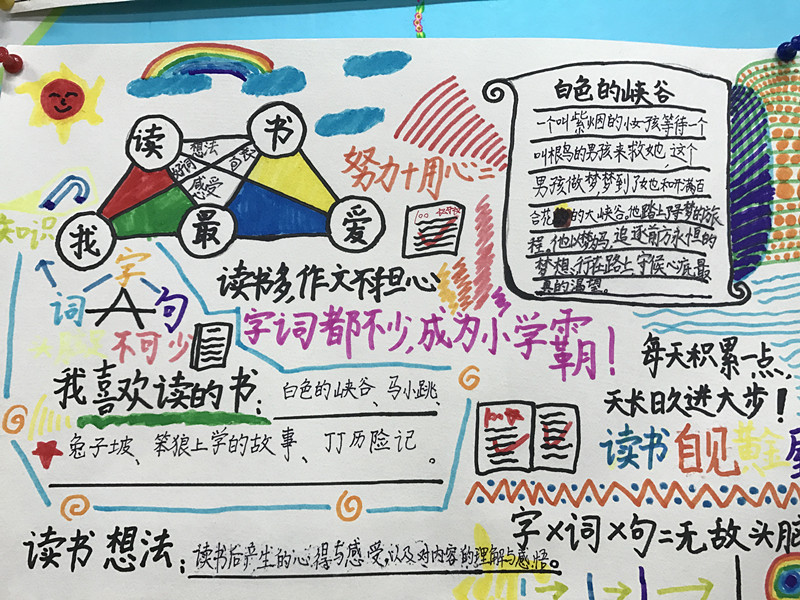 读 书
想法
好词
感受
我 最 爱
努力+用心=
白色的峡谷
一个叫紫烟的小女孩等待一个
叫根鸟的男孩来救她,这个
男孩做梦梦到了女也和开满百
合花的大峡谷,他踏上降梦的旅
程,他以梦为马,追逐前方永恒的
梦想,行在路上,守候心底最
真的渴望。
知识
字
词 句
不可少
读书多,作文不担心
字词都不少,成为小学霸!
我喜欢读的书:白色的峡谷、马小跳、
兔子坡、笨狼上学的故事、丁丁历险记。
每天积累一点,
天长日久进大步!
读书自见黄金屋
字×词×句=无敌头脑
读书想法:读书后产生的心得与感受,以及对内容的理解与感悟。